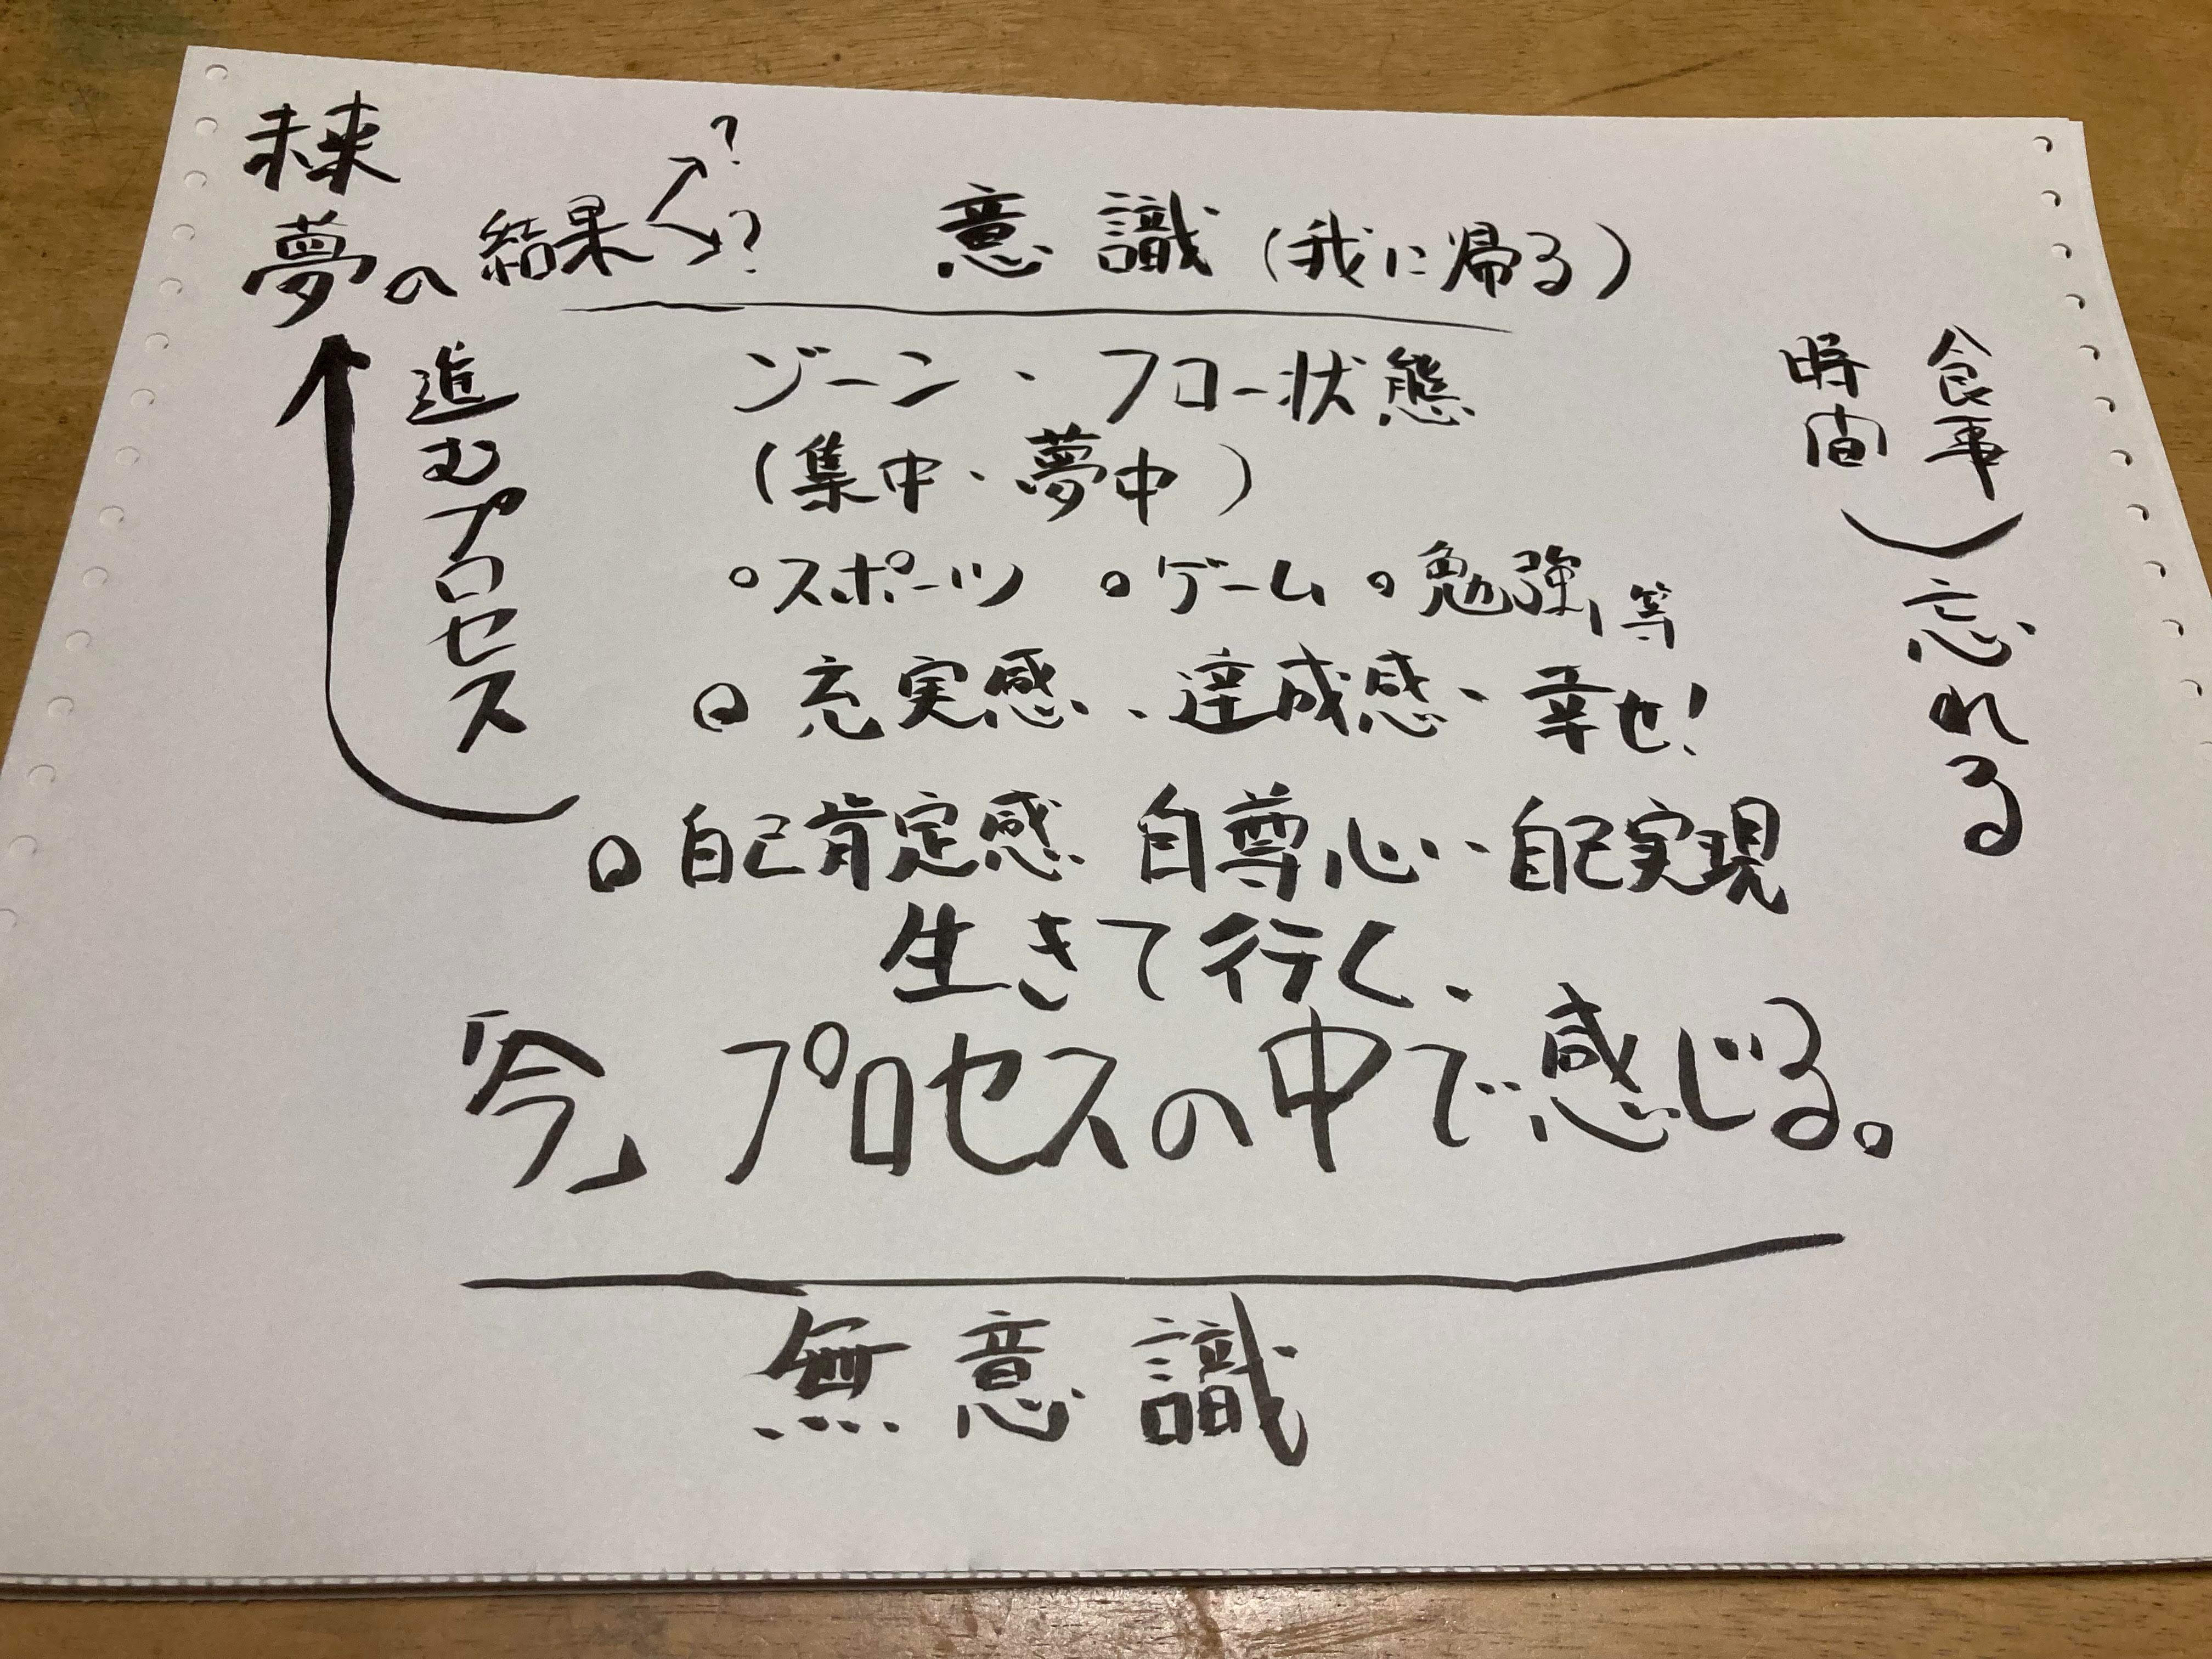 未来
夢の結果
?
?
意識(我に帰る)
進むプロセス
ゾーン・フロー状態
(集中・夢中)
○スポーツ ○ゲーム ○勉強等
○充実感、達成感、幸せ!
○自己肯定感 自尊心・自己実現
生きて行く、
「今」プロセスの中で感じる。
食事
時間
忘れる
無意識